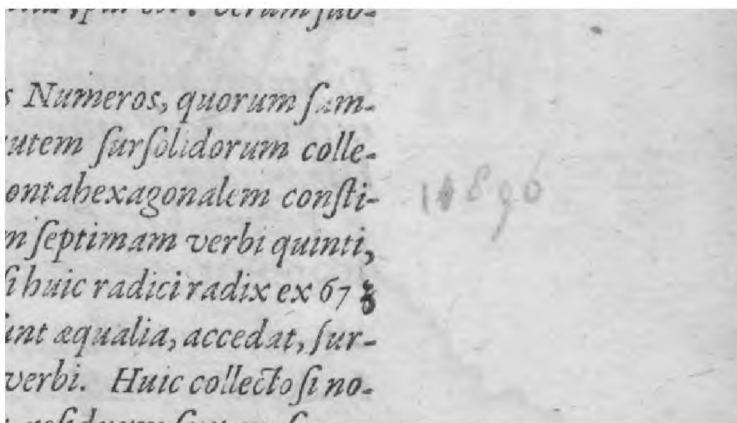 s Numeros, quorum sum-
utem sursolidorum colle-
ontahexagonalem consti-
m septimam verbi quinti,
si huic radici radix ex 67 ʒ
unt æqualia, accedat, sur-
verbi. Huic collecto si no-